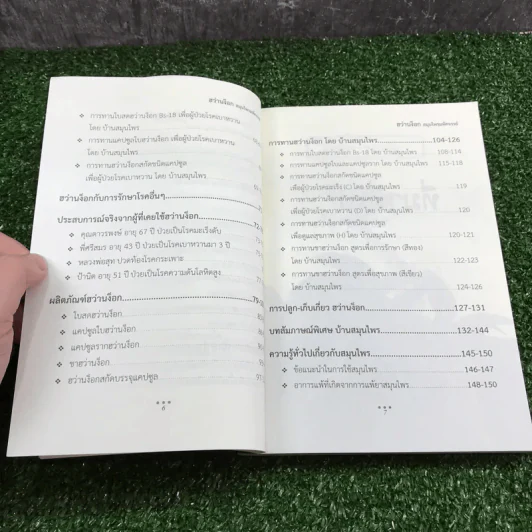 ฮว่านง็อก
❖ การทานใบสดฮว่านง็อก Ju-18 เพื่อผู้ป่วยโรคเบาหวาน
โดย บ้านสมุนไพร
❖ การทานแคปซูลใบฮว่านง็อก เพื่อผู้ป่วยโรคเบาหวาน
โดย บ้านสมุนไพร
❖ การทานฮว่านง็อกสกัดชนิดแคปซูล
เพื่อผู้ป่วยโรคเบาหวาน โดย บ้านสมุนไพร
ฮว่านง็อกกับการรักษาโรคอื่นๆ
ประสบการณ์จริงจากผู้ที่เคยใช้ฮว่านง็อก
❖ คุณถาวรพงษ์ อายุ 67 ปี ป่วยเป็นโรคมะเร็งตับ
❖ พี่ศรีสมร อายุ 43 ปี ป่วยเป็นโรคเบาหวานมา 3 ปี
❖ หลวงพ่อสุข ปวดท้องโรคกระเพาะ
❖ ป้านิด อายุ 51 ปี ป่วยเป็นโรคความดันโลหิตสูง
ผลิตภัณฑ์ฮว่านง็อก
❖ ใบสดฮว่านง็อก
❖ แคปซูลใบฮว่านง็อก
❖ แคปซูลรากฮว่านง็อก
❖ ชาฮว่านง็อก
❖ ฮว่านง็อกสกัดบรรจุแคปซูล
6
ฮว่านง็อก สมุนไพรมหัศจรรย์
การทานฮว่านง็อก โดย บ้านสมุนไพร 104-126
❖ การทานใบสดฮว่านง็อก Ju-18 โดย บ้านสมุนไพร 108-114
❖ การทานแคปซูลใบและแคปซูลราก โดย บ้านสมุนไพร 115-118
❖ การทานฮว่านง็อกสกัดชนิดแคปซูล
เพื่อผู้ป่วยมะเร็ง (C) โดย บ้านสมุนไพร 119
❖ การทานฮว่านง็อกสกัดชนิดแคปซูล
เพื่อผู้ป่วยโรคเบาหวาน (D) โดย บ้านสมุนไพร 120
❖ การทานฮว่านง็อกสกัดชนิดแคปซูล
เพื่อดูแลสุขภาพ (H) โดย บ้านสมุนไพร 120-121
❖ การทานชาฮว่านง็อก สูตรเพื่อการรักษา (สีทอง)
โดย บ้านสมุนไพร 122-123
❖ การทานชาฮว่านง็อก สูตรเพื่อสุขภาพ (สีเขียว)
โดย บ้านสมุนไพร 124-126
การปลูก-เก็บเกี่ยว ฮว่านง็อก 127-131
บทสัมภาษณ์พิเศษ บ้านสมุนไพร 132-144
ความรู้ทั่วไปเกี่ยวกับสมุนไพร 145-150
❖ ข้อแนะนำในการใช้สมุนไพร 146-147
❖ อาการแพ้ที่เกิดจากการแพ้ยาสมุนไพร 148-150
7